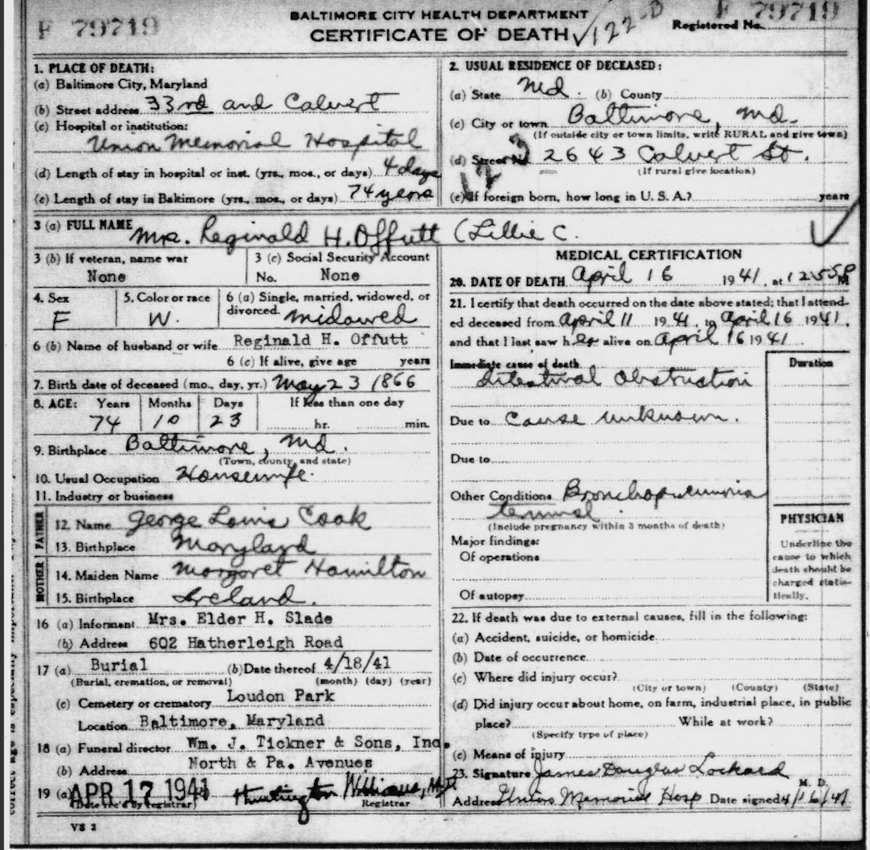 F 79719
BALTIMORE CITY HEALTH DEPARTMENT
CERTIFICATE OF DEATH
√122-B
F 79719
Registered No.
1. PLACE OF DEATH:
(a) Baltimore City, Maryland
(b) Street address 33rd and Calvert
(c) Hospital or institution:
Union Memorial Hospital
(d) Length of stay in hospital or inst. (yrs., mos., or days) 4 days
(e) Length of stay in Baltimore (yrs., mos., or days) 74 years
2. USUAL RESIDENCE OF DECEASED:
(a) State Md. (b) County
(c) City or town Baltimore, Md.
(If outside city or town limits, write RURAL and give town)
(d) Street No. 2643 Calvert St.
(If rural give location)
123
(e) If foreign born, how long in U. S. A.? years
3 (a) FULL NAME Mrs. Reginald H. Offutt (Lillie C.
3 (b) If veteran, name war
None
3 (c) Social Security Account
No. None
4. Sex
F
5. Color or race
W.
6 (a) Single, married, widowed, or
divorced. Widowed
6 (b) Name of husband or wife Reginald H. Offutt
6 (c) If alive, give age years
7. Birth date of deceased (mo., day, yr.) May 23 1866
8. AGE: Years Months Days If less than one day
74 10 23 hr. min.
9. Birthplace Baltimore, Md.
(Town, county, and state)
10. Usual Occupation Housewife.
11. Industry or business
FATHER
12. Name George Louis Cook
13. Birthplace Maryland
MOTHER
14. Maiden Name Margaret Hamilton
15. Birthplace Ireland.
16 (a) Informant Mrs. Elder H. Slade
(b) Address 602 Hatherleigh Road
17 (a) Burial (b) Date thereof 4/18/41
(Burial, cremation, or removal) (month) (day) (year)
(c) Cemetery or crematory Loudon Park
Location Baltimore, Maryland
18 (a) Funeral director Wm. J. Tickner & Sons, Inc.
(b) Address North & Pa. Avenues
19 (a) APR 17 1941 Huntington Williams, M.D.
(Date rec'd by registrar) Registrar
VS 2
MEDICAL CERTIFICATION
20. DATE OF DEATH April 16 1941, at 12:55 P M
21. I certify that death occurred on the date above stated; that I attend-
ed deceased from April 11 1941, to April 16 1941.
and that I last saw her alive on April 16 1941.
Immediate cause of death
Duration
Intestinal Obstruction
Due to Cause Unknown.
Due to
Other Conditions Bronchopneumonia
terminal.
(Include pregnancy within 3 months of death)
Major findings:
Of operations
Of autopsy
PHYSICIAN
Underline the
cause to which
death should be
charged statis-
tically.
22. If death was due to external causes, fill in the following:
(a) Accident, suicide, or homicide
(b) Date of occurrence
(c) Where did injury occur?
(City or town) (County) (State)
(d) Did injury occur about home, on farm, industrial place, in public
place? While at work?
(Specify type of place)
(e) Means of injury
23. Signature James Douglas Lockard
M. D.
Address Union Memorial Hosp Date signed 4/16/41